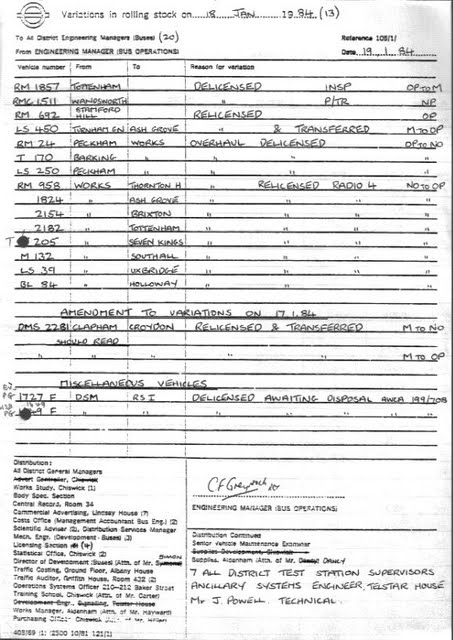 Variations in rolling stock on 18 JAN 1984 (13)
To All District Engineering Managers (Buses) (20)
Reference 103/1/
From ENGINEERING MANAGER (BUS OPERATIONS)
Date 19.1.84
Vehicle number From To Reason for variation
RM 1857 TOTTENHAM DELICENSED INSP OP TO M
RMC 1511 WANDSWORTH " P/TR NP
RM 692 STAMFORD HILL RELICENSED OP
LS 450 TURNHAM GN ASH GROVE " & TRANSFERRED M TO OP
RM 24 PECKHAM WORKS OVERHAUL DELICENSED OP TO NO
T 170 BARKING " " " "
LS 250 PECKHAM " " " "
RM 958 WORKS THORNTON H " RELICENSED RADIO 4 NO TO OP
1824 " ASH GROVE " " " "
2154 " BRIXTON " " " "
2182 " TOTTENHAM " " " "
T 205 " SEVEN KINGS " " " "
M 132 " SOUTHALL " " " "
LS 39 " UXBRIDGE " " " "
BL 84 " HOLLOWAY " " " "
AMENDMENT TO VARIATIONS ON 17.1.84
DMS 2281 CLAPHAM CROYDON RELICENSED & TRANSFERRED M TO NO
SHOULD READ
" " " " " " M TO OP
MISCELLANEOUS VEHICLES
1727 F DSM RSI DELICENSED AWAITING DISPOSAL AWCA 199/708
F " " " " " "
Distribution:
All District General Managers
Advert Controller, Chiswick
Works Study, Chiswick (1)
Body Spec. Section
Central Record, Room 34
Commercial Advertising, Lindsay House (7)
Costs Office (Management Accountant Bus Eng.) (2)
Scientific Adviser (2), Distribution Services Manager
Mech. Engr. (Development - Buses) (3)
Licensing Section (4)
Statistical Office, Chiswick (2)
SIMON
Director of Development (Buses) (Attn. of Mr.
Traffic Costing, Ground Floor, Albany House
Traffic Auditor, Griffith House, Room 432 (2)
Operations Systems Officer 210-212 Baker Street
Training School, Chiswick (Attn. of Mr. Carter)
Development Engr., Signalling, Telstar House
Works Manager, Aldenham (Attn. of Mr. Hayward)
Purchasing Officer, Chiswick (Attn. of Mr.
403/69 (1) (2500 10/81 121/1)
ENGINEERING MANAGER (BUS OPERATIONS)
Distribution Continued
Senior Vehicle Maintenance Examiner
Supplies Development, Chiswick
Supplies, Aldenham (Attn. of Mr. DANCY)
7 ALL DISTRICT TEST STATION SUPERVISORS
ANCILLARY SYSTEMS ENGINEER TELSTAR HOUSE
Mr J. POWELL TECHNICAL.